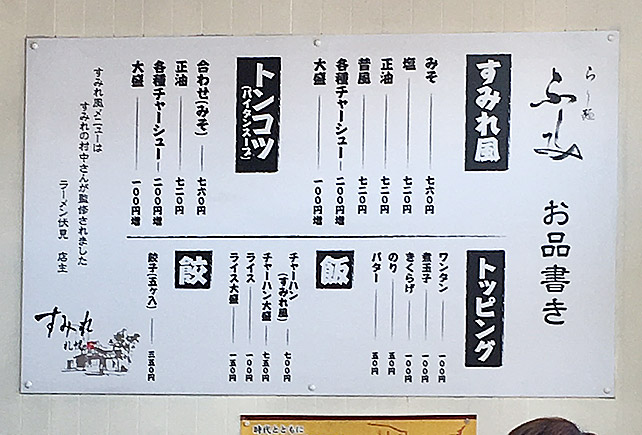 らー麺
ふしみ
お品書き
すみれ風
みそ 七六〇円
塩 七二〇円
正油 七二〇円
昔風 七二〇円
各種チャーシュー 二〇〇円増
大盛 一〇〇円増
トンコツ
(パイタンスープ)
合わせ(みそ) 七六〇円
正油 七二〇円
各種チャーシュー 二〇〇円増
大盛 一〇〇円増
すみれ風メニューは
すみれの村中さんが監修されました
ラーメン伏見 店主
トッピング
ワンタン 一〇〇円
煮玉子 一〇〇円
きくらげ 一〇〇円
のり 五〇円
バター 五〇円
飯
チャーハン
(すみれ風) 七〇〇円
チャーハン大盛 七五〇円
ライス 一〇〇円
ライス大盛 一五〇円
餃
餃子(五ヶ入) 三五〇円
すみれ
札幌
時代とともに